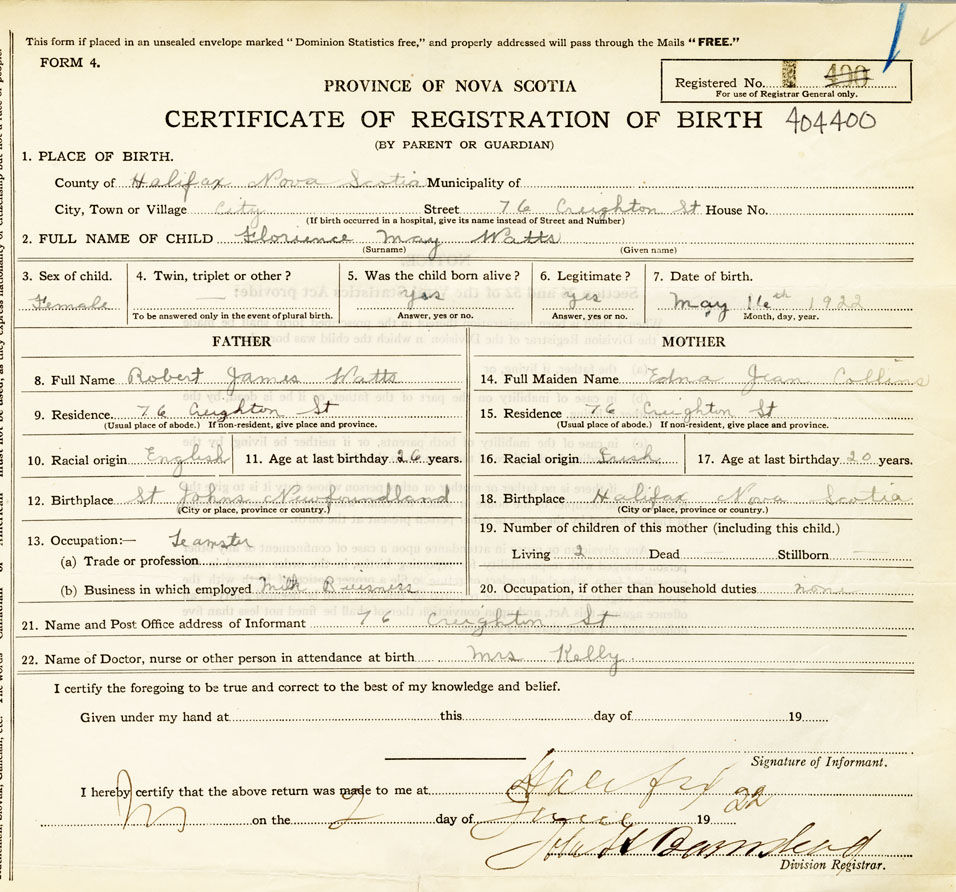 This form if placed in an unsealed envelope marked "Dominion Statistics free," and properly addressed will pass through the Mails "FREE."
FORM 4.
Registered No. 400
For use of Registrar General only.
PROVINCE OF NOVA SCOTIA
CERTIFICATE OF REGISTRATION OF BIRTH 404400
(BY PARENT OR GUARDIAN)
1. PLACE OF BIRTH.
County of Halifax Nova Scotia Municipality of
City, Town or Village City Street 76 Creighton St House No.
(If birth occurred in a hospital, give its name instead of Street and Number)
2. FULL NAME OF CHILD Florience May Watts
(Surname) (Given name)
3. Sex of child. 4. Twin, triplet or other? 5. Was the child born alive? 6. Legitimate? 7. Date of birth.
Female — yes yes May 16th 1922
To be answered only in the event of plural birth. Answer, yes or no. Answer, yes or no. Month, day, year.
FATHER MOTHER
8. Full Name Robert James Watts 14. Full Maiden Name Edna Jean Collins
9. Residence. 76 Creighton St 15. Residence 76 Creighton St
(Usual place of abode.) If non-resident, give place and province. (Usual place of abode.) If non-resident, give place and province.
10. Racial origin English 11. Age at last birthday 26 years. 16. Racial origin Irish 17. Age at last birthday 20 years.
12. Birthplace St Johns Newfoundland 18. Birthplace Halifax Nova Scotia
(City or place, province or country.) (City or place, province or country.)
19. Number of children of this mother (including this child.)
13. Occupation:— Teamster
(a) Trade or profession Living 2 Dead Stillborn
(b) Business in which employed Milk Buisness 20. Occupation, if other than household duties none
21. Name and Post Office address of Informant 76 Creighton St
22. Name of Doctor, nurse or other person in attendance at birth Mrs Kelly
I certify the foregoing to be true and correct to the best of my knowledge and belief.
Given under my hand at this day of 19
Signature of Informant.
I hereby certify that the above return was made to me at Halifax
on the 2 day of June 19 22
Division Registrar.